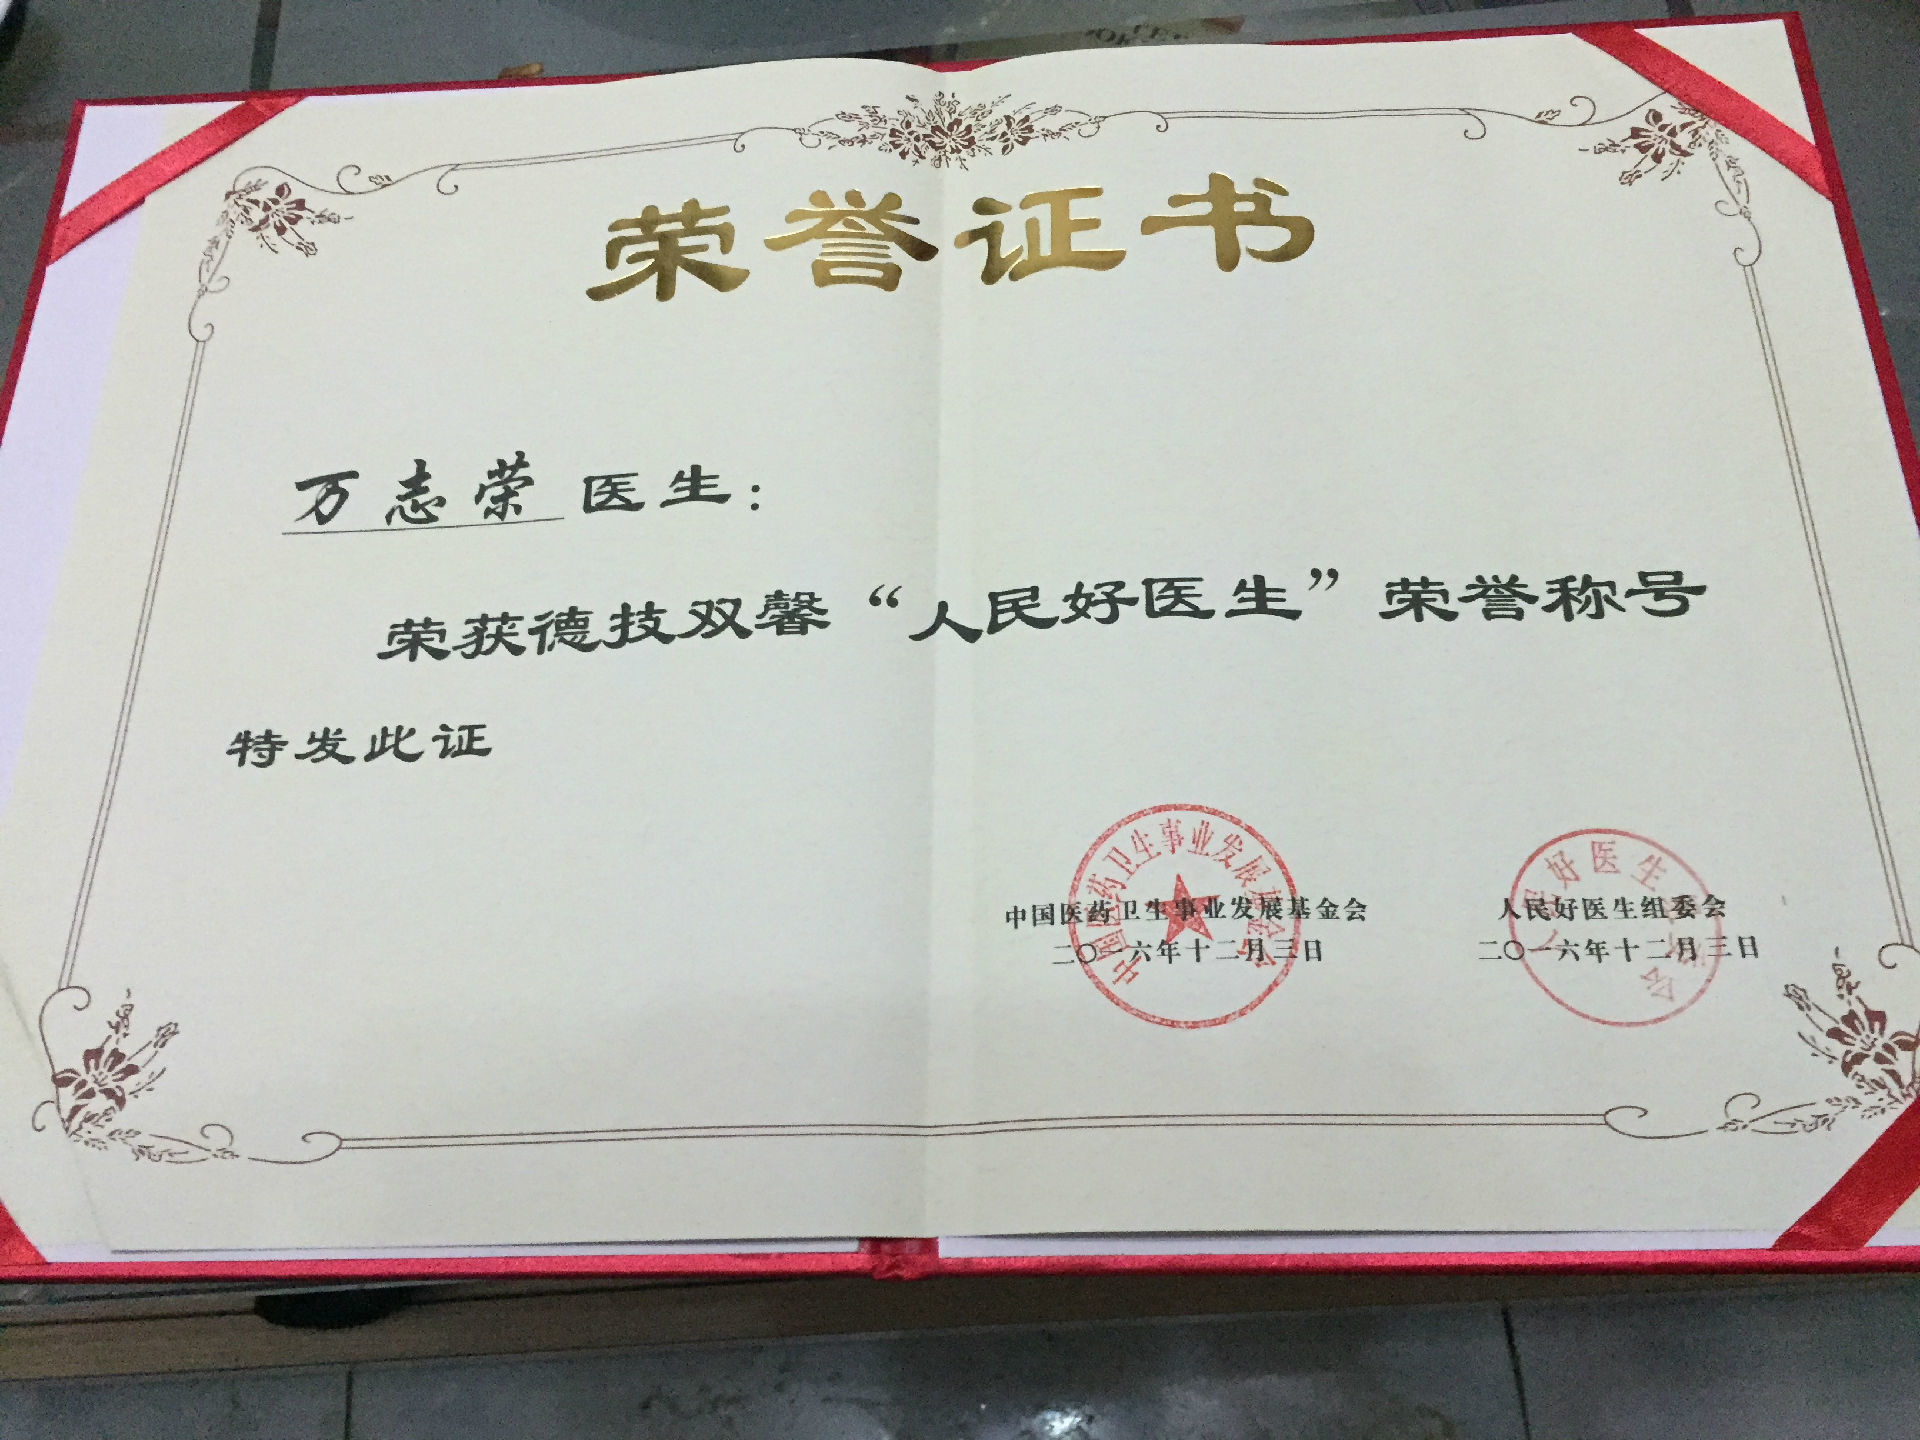 荣誉证书
万志荣医生：
荣获德技双馨“人民好医生”荣誉称号
特发此证
中国医药卫生事业发展基金会
二〇一六年十二月三日
人民好医生组委会
二〇一六年十二月三日
中国医药卫生事业发展基金会
人民好医生组委会